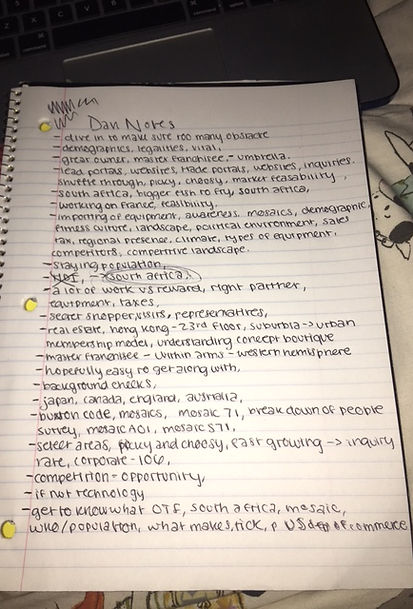 Dan Notes
- dive in to make sure too many obstacle
- demographics, legalities, vital,
- great owner, master franchisee, - umbrella.
lead portals, websites, trade portals, websites, inquiries.
shuffle through, picky, choosy, market feasability,
- south africa, bigger fish to fry, south africa,
- working on France, feasibility.
- importing of equipment, awareness, mosaics, demographic,
fitness culture, landscape, political environment, sales
tax, regional presense, climate, types of equipment,
competitors, competitive landscape.
- staying population,
- → south africa,
- a lot of work vs reward, right partner,
equipment, taxes,
- secret shopper, visits, representatives,
- real estate, hong kong - 23rd floor, suburbia → urban
membership model, understanding concept boutique
- master franchisee - within arms - western hemisphere
- hopefully easy to get along with,
- background checks,
- japan, canada, england, australia,
- code, mosaics, mosaic 71, break down of people
survey, mosaic A01, mosaic S71,
- select areas, picky and choosy, fast growing → inquiry
rate, corporate - 106,
- competition = opportunity,
- if not technology
- get to know what OTF, south africa, mosaic,
who/population, what makes tick, US dep of commerce